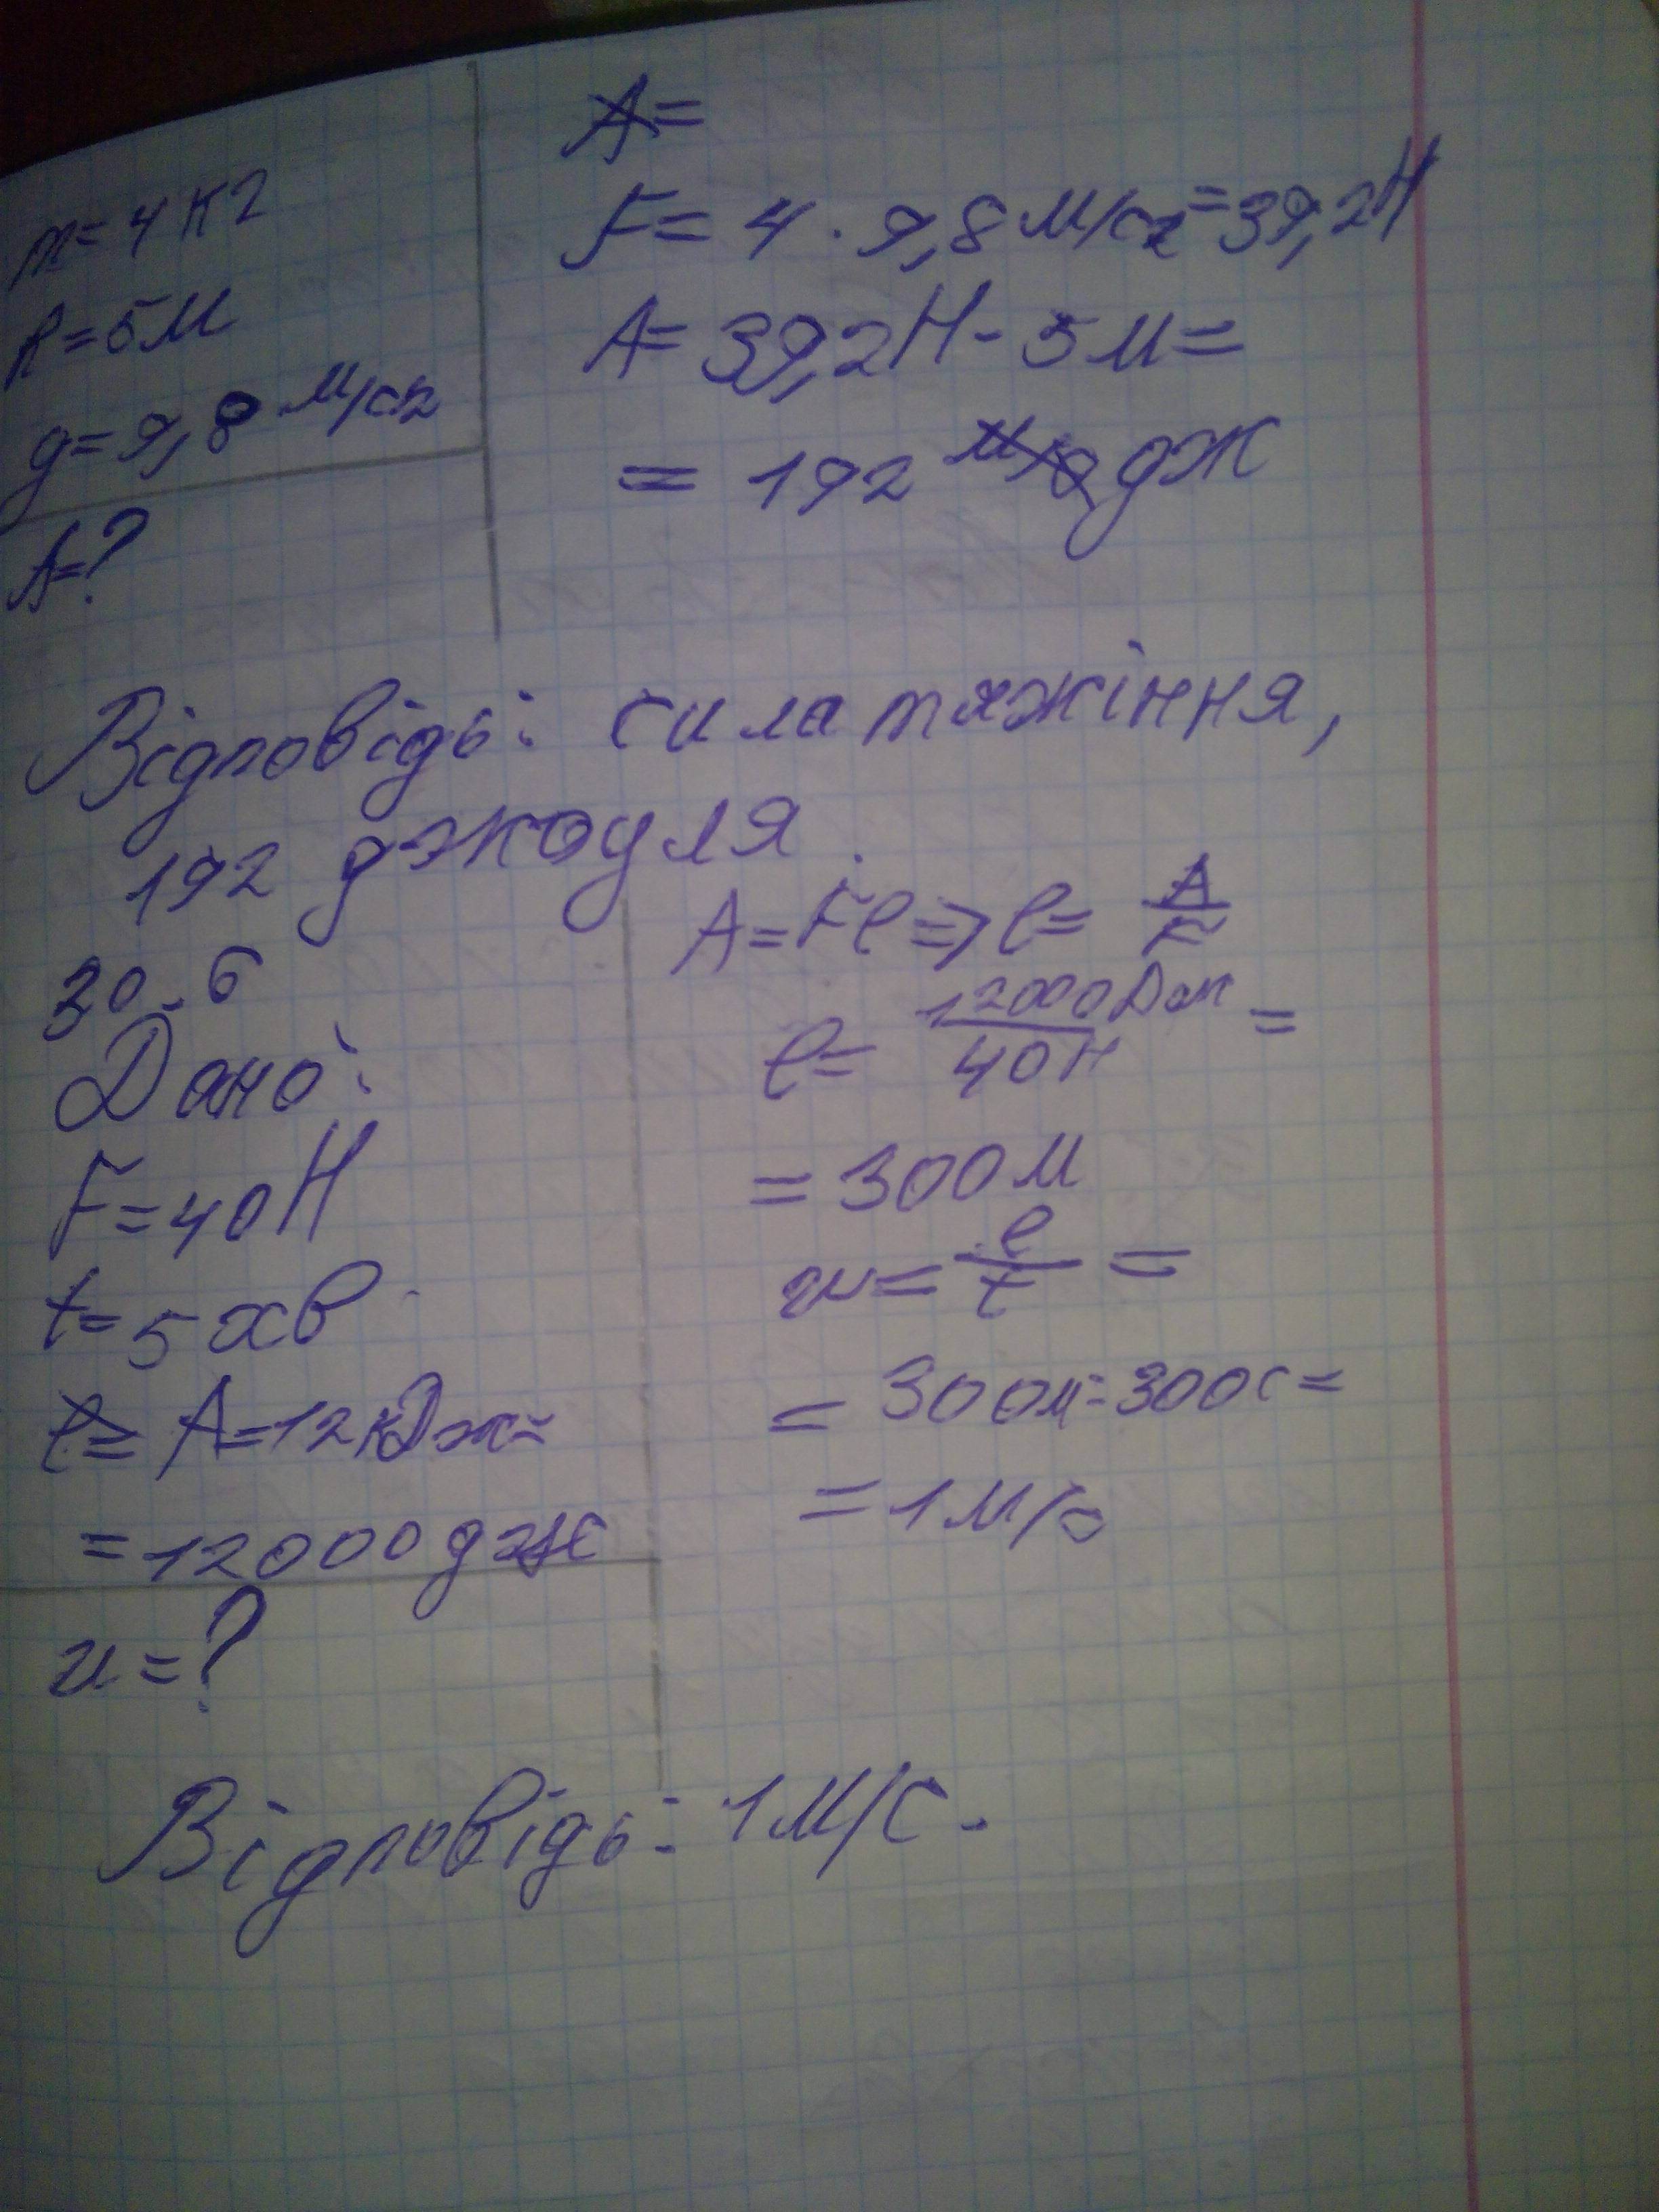 m=4кг
l=5м
g=9,8 м/с2
A=?
A=
F= 4 · 9,8 м/с2=39,2Н
A= 39,2Н · 5м=
= 192 дж
Відповідь: сила тяжіння,
192 джоуля.
30.6
Дано:
F=40Н
t=5хв
l= A=12кДж=
=12000дж
u=?
A=Fl=>l= A/F
l= 12000Дж/40Н =
=300м
u= l/t =
= 300м:300с=
=1м/с
Відповідь: 1м/с.